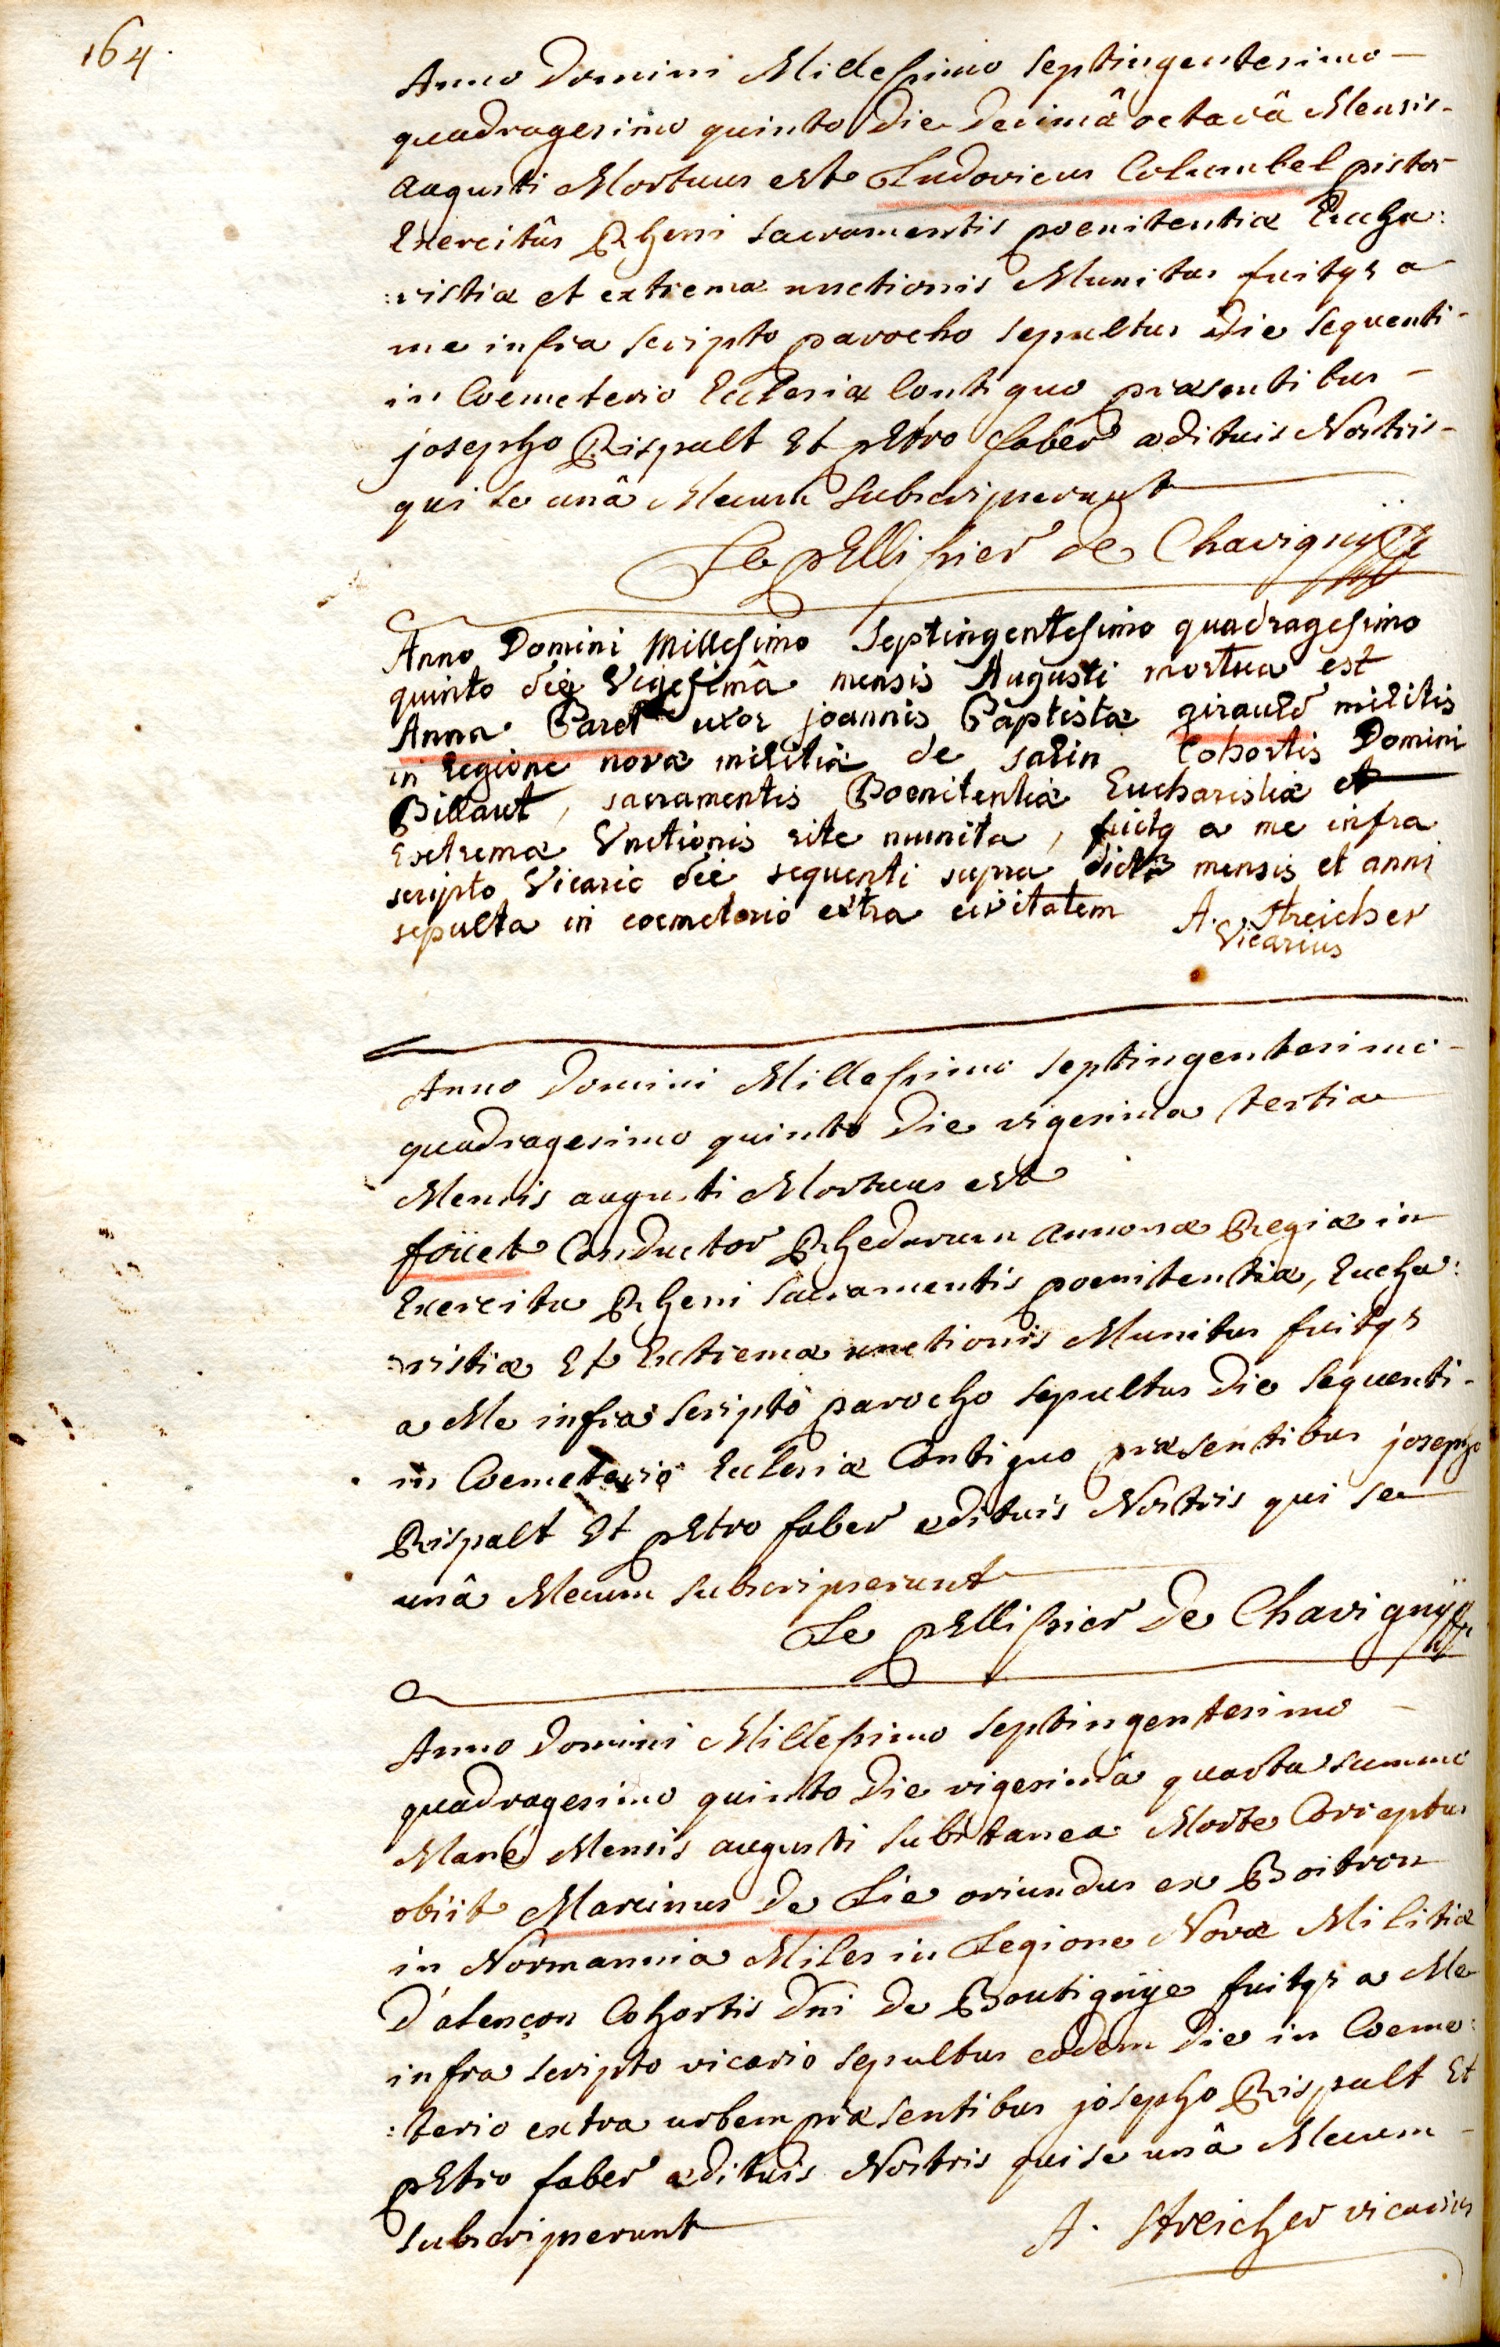 164.
Anno Domini Millesimo septingentesimo –
quadragesimo quinto die decimâ octavâ Mensis –
augusti Mortuus est Ludovicus Columbel pistor
Exercitûs Rheni sacramentis poenitentiæ Eucha:
:ristiæ et extremæ unctionis Munitus fuitqz a
me infra scripto parocho sepultus die sequenti –
in Coemeterio Ecclesiæ Contiguo præsentibus –
josepho Rispalt Et pEtro faber ædituis Nostris –
qui se unâ Mecum subscripserunt
Le pEllissier de Chavignÿ
Anno Domini Millesimo Septingentesimo quadragesimo
quinto die Vigesimâ mensis Augusti mortua est
Anna Paret uxor joannis Baptistæ girauld militis
in legione novæ militiæ de salin Cohortis Domini
Billaut, sacramentis Poenitentiæ Eucharistiæ et
Extremæ Unctionis rite munita, fuitq a me infra
scripto Vicario die sequenti supra dicti mensis et anni
sepulta in coemeterio extra civitatem A. Streicher
Vicarius
Anno Domini Millesimo septingentesimo –
quadragesimo quinto die vigesima tertia
Mensis augusti Mortuus est
foüet Conductor Rhedarum annonæ Regiæ in
Exercitu Rheni sacramentis poenitentiæ, Eucha:
:ristiæ Et Extremæ unctionis Munitus fuitqz
a Me infra scripto parocho sepultus die sequenti –
in Coemeterio Ecclesiæ Contiguo præsentibus josepho
Rispalt Et pEtro faber ædituis Nostris qui se
unâ Mecum subscripserunt
Le pEllissier de Chavignÿ
Anno Domini Millesimo septingentesimo –
quadragesimo quinto die vigesimâ quarta summo
Mane Mensis augusti subitanea Morte Correptus
obiit Marinus de Lie oriundus ex Boitron
in Normannia Miles in Legione Novæ Militiæ
D'alençon Cohortis Dni de Boutignÿe fuitqz a Me
infra scripto vicario sepultus eodem die in Coeme:
:terio extra urbem præsentibus josepho Rispalt Et
pEtro faber ædituis Nostris qui se unâ Mecum –
subscripserunt A. Streicher vicarius